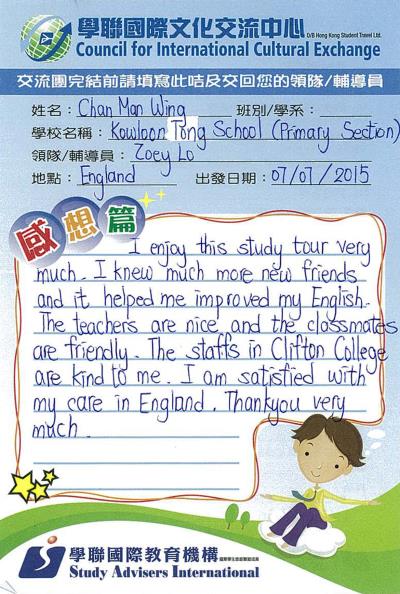 學聯國際文化交流中心 D/B Hong Kong Student Travel Ltd.
Council for International Cultural Exchange
交流團完結前請填寫此咭及交回您的領隊/輔導員
姓名：Chan Man Wing 班別/學系：
學校名稱：Kowloon Tong School (Primary Section)
領隊/輔導員：Zoey Lo
地點：England 出發日期：07/07/2015
感想篇
I enjoy this study tour very
much. I knew much more new friends
and it helped me improved my English.
The teachers are nice and the classmates
are friendly. The staffs in Clifton College
are kind to me. I am satisfied with
my care in England. Thankyou very
much.
學聯國際教育機構
Study Advisers International